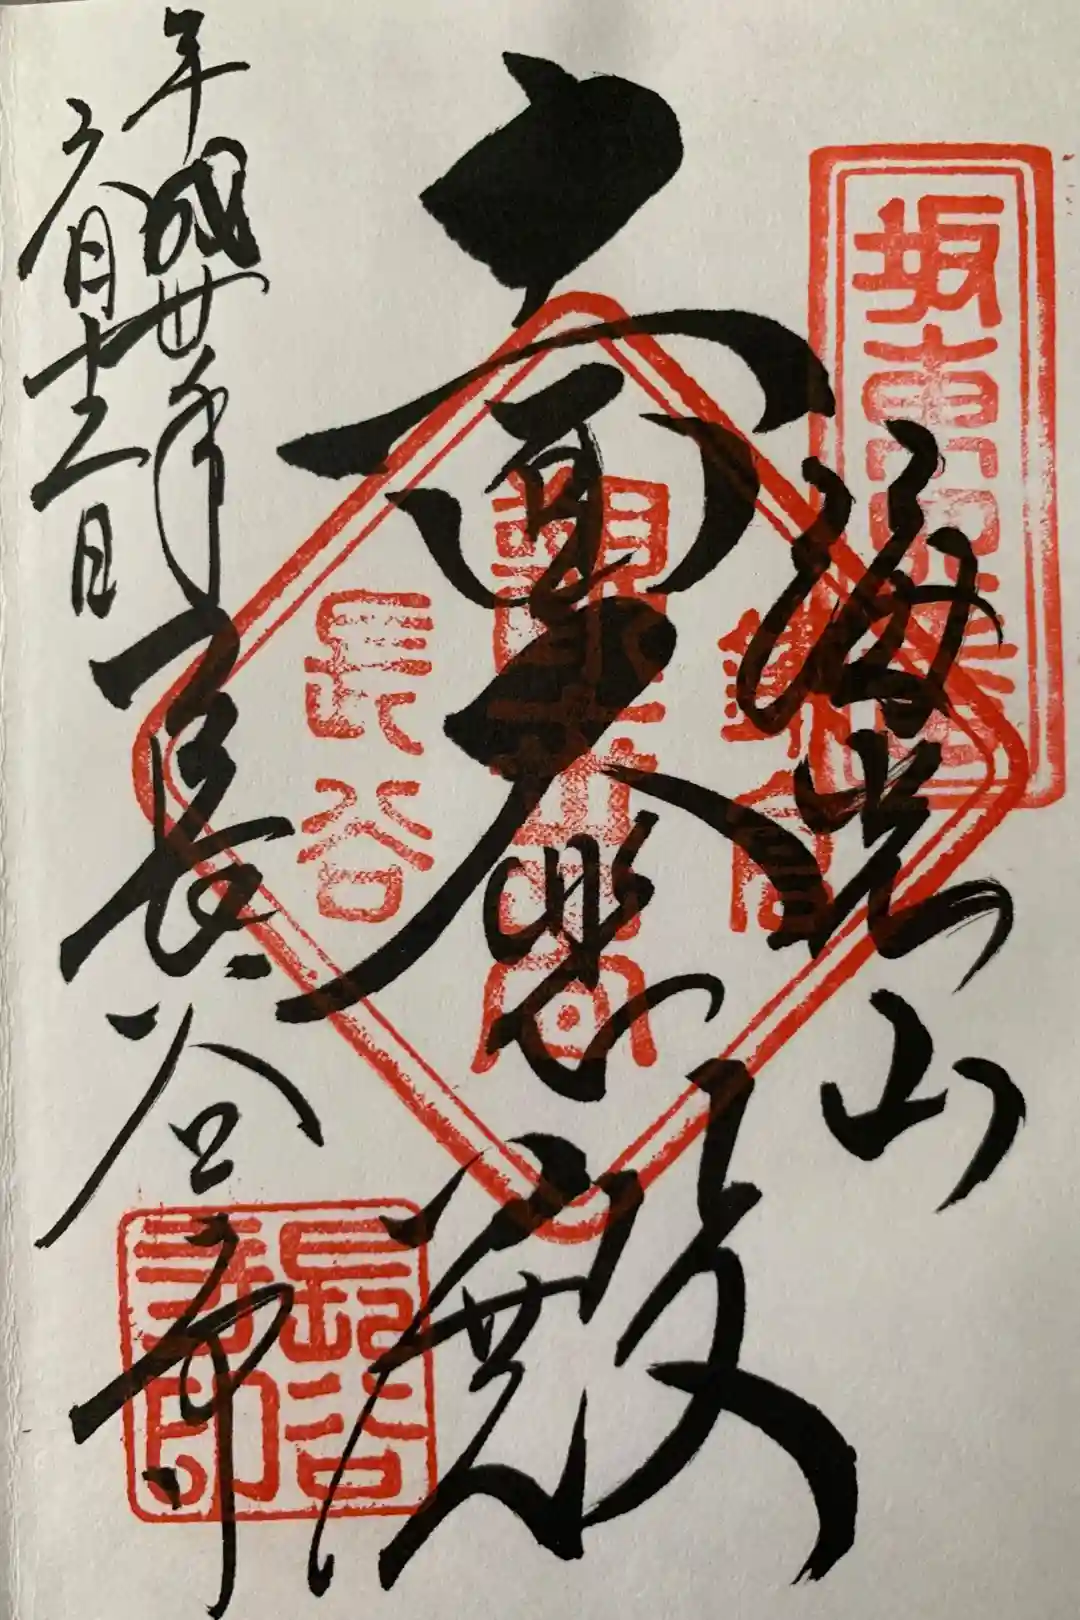 坂東四番
海光山
十一面大悲殿
鎌倉
長谷
平成廿年
六月
長谷寺
長谷寺印